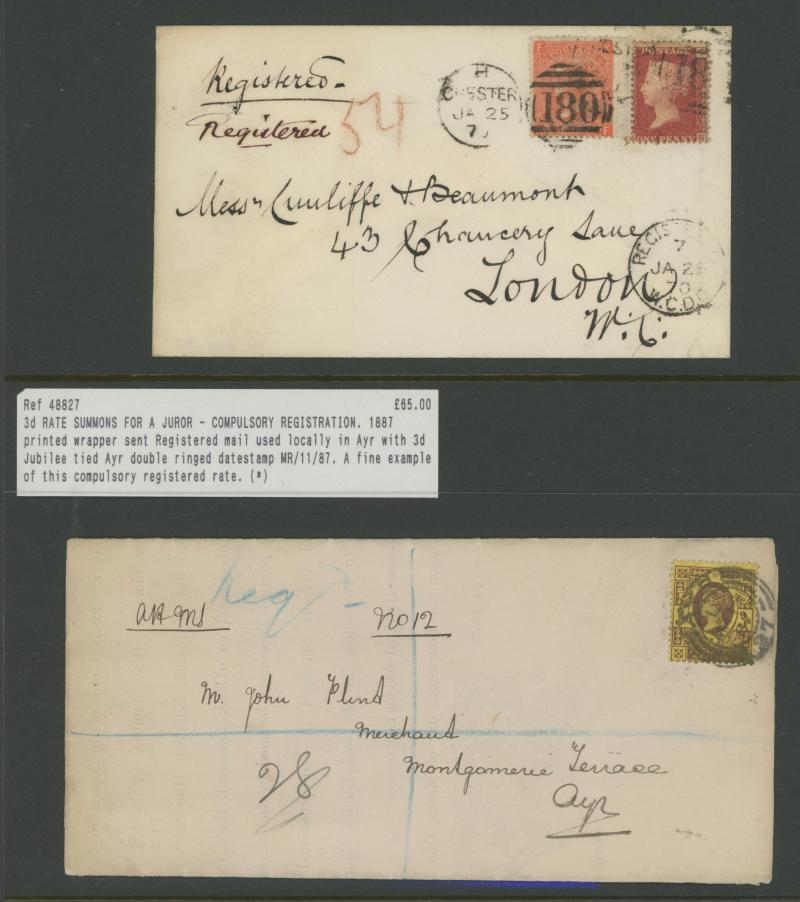 Registered
Registered
54
H
CHESTER
JA 25
180
18
F
POSTAGE
ONE PENNY
Messrs Cunliffe & Beaumont
43 Chancery Lane
London
W.C.
REGISTERED
7
JA 26
70
W.C.D.O
Ref 48827 £65.00
3d RATE SUMMONS FOR A JUROR - COMPULSORY REGISTRATION. 1887
printed wrapper sent Registered mail used locally in Ayr with 3d
Jubilee tied Ayr double ringed datestamp MR/11/87. A fine example
of this compulsory registered rate. (*)
Regd
No 12
Mr. John Flint
Merchant
Montgomerie Terrace
Ayr
28